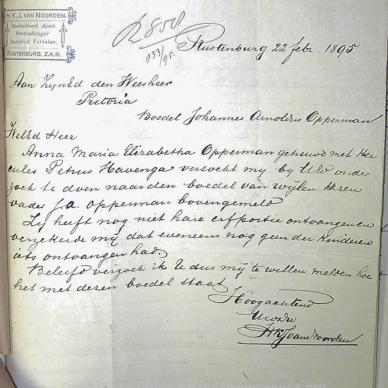 H.K.J. VAN NOORDEN.
Rustenburg, Z.A.R.
R850
933/95
Rustenburg 22 febr. 1895
Aan Zyned den Weesheer
Pretoria
Boedel Johannes Arnoldus Opperman
WelEd Heer
Anna Maria Elizabetha Opperman gehuwd met Her
cules Petrus Havenga verzocht my by UEd onder
zoek te doen naar den boedel van wijlen haren
vader J.A. opperman bovengemeld
Zij heeft nog niet hare erfportie ontvangen en
verzekerde mij dat eveneens nog geen der kinderen
iets ontvangen had,
Beleefd verzoek ik U dus mij te willen melden hoe
het met dezen boedel staat.
Hoogachtend
Uw
HKJ van Noorden